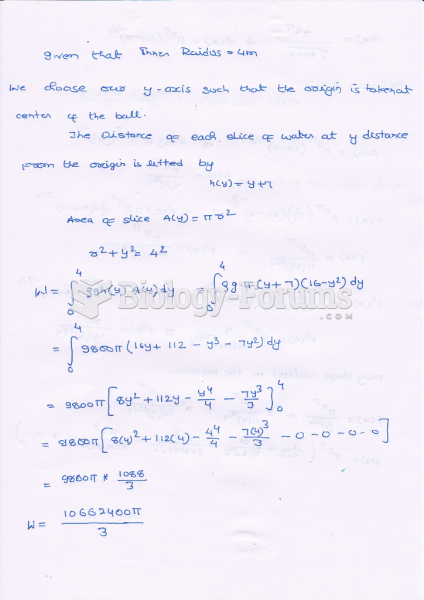 given that Inner Raidus = 4m
We choose our y-axis such that the origin is taken at
center of the ball.
The Distance of each slice of water at y distance
from the origin is lifted by
h(y) = y+7
Area of slice A(y) = πr²
r² + y² = 4²
W = ∫₀⁴ ρg h(y) A(y) dy = ∫₀⁴ ρg π (y+7)(16-y²) dy
Biology-Forums
.COM
= ∫₀⁴ 9800π (16y + 112 - y³ - 7y²) dy
= 9800π [8y² + 112y - y⁴/4 - 7y³/3]₀⁴
= 9800π [8(4)² + 112(4) - 4⁴/4 - 7(4)³/3 - 0 - 0 - 0]
= 9800π * 1088/3
W = 10662400π/3